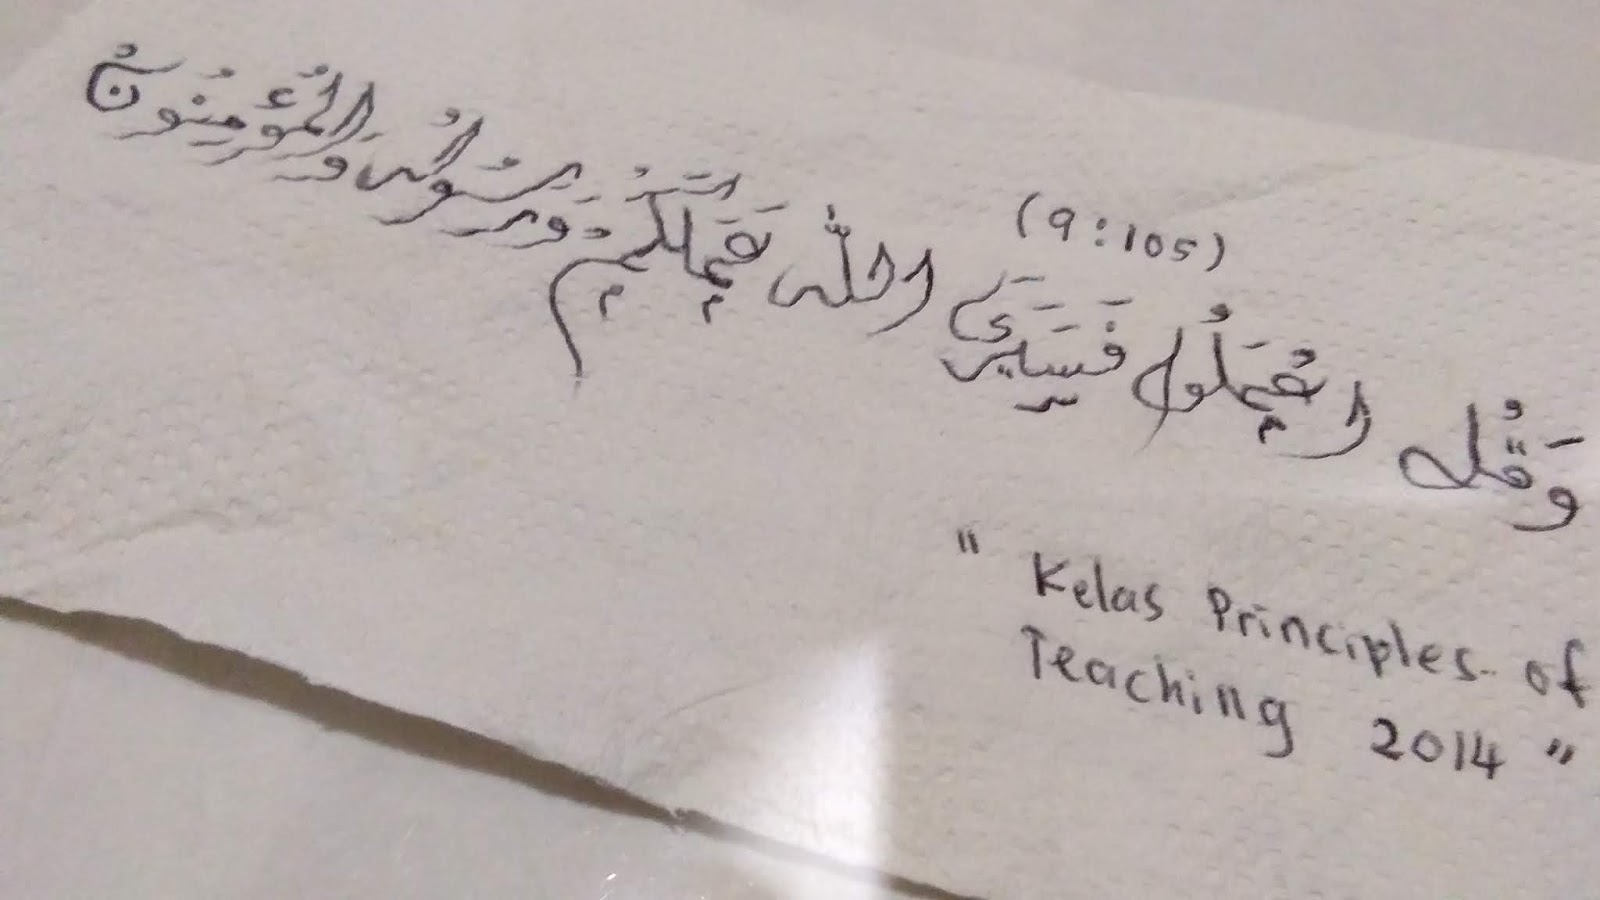 وَقُل اعْمَلُوا فَسَيَرَى اللّٰه عَمَلَكُمْ وَرَسُولُه وَالْمُؤْمِنُونَ
(9:105)
" Kelas Principles of
Teaching 2014 "